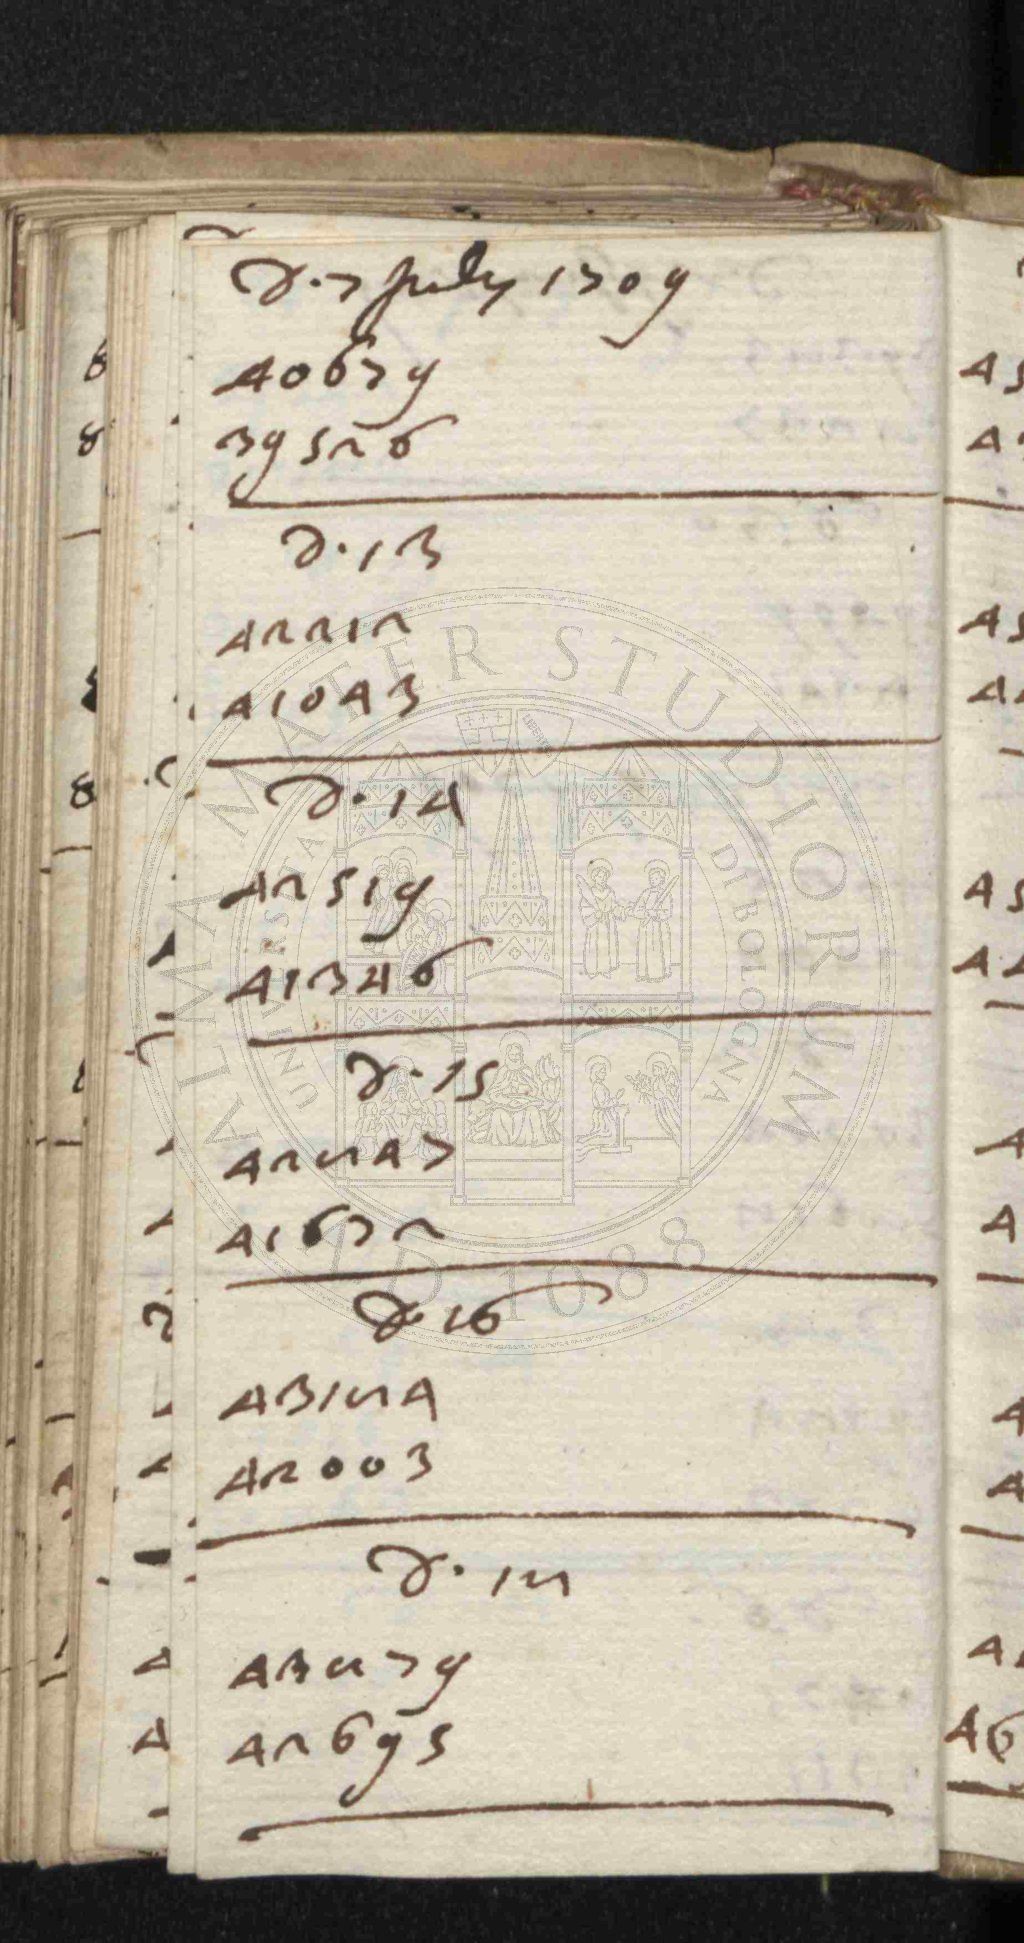 D. 7 July 1709
40679
39526
D. 13
42212
41043
D. 14
42519
41346
D. 15
42847
41672
D. 16
43184
42003
D. 18
43879
42695
ALMA MATER STUDIORUM
UNIVERSITA DI BOLOGNA
A.D. 1088